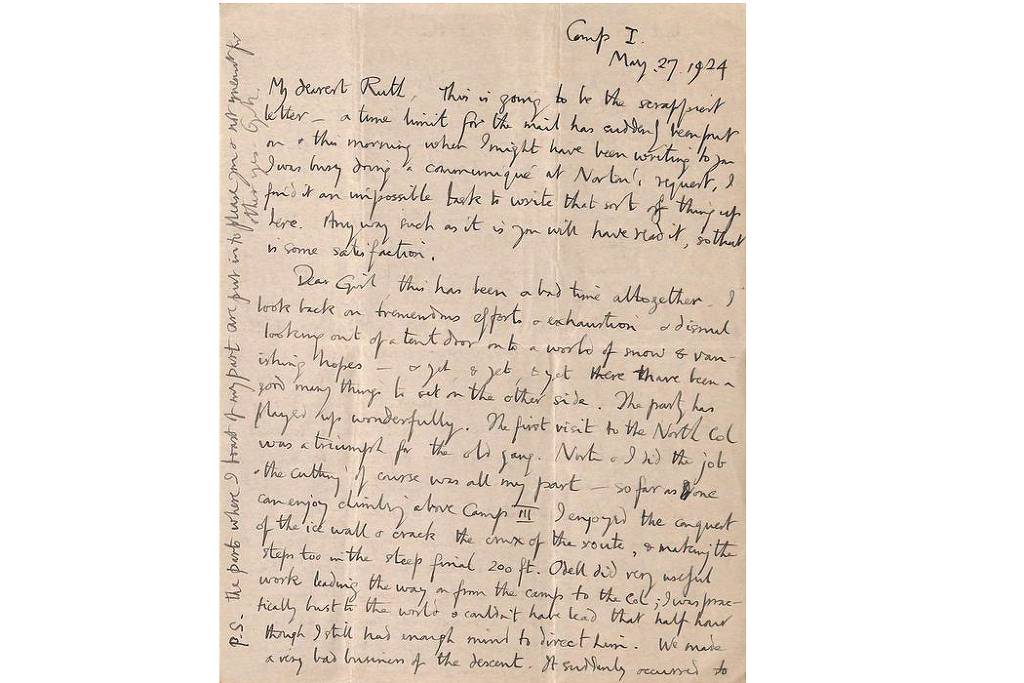 Camp I.
May. 27. 1924
My dearest Ruth, This is going to be the scrappiest
letter — a time limit for the mail has suddenly been put
on & this morning when I might have been writing to you
I was busy doing a communiqué at Norton's request, I
find it an impossible task to write that sort of thing up
here. Anyway such as it is you will have read it, so that
is some satisfaction.
Dear Girl this has been a bad time altogether. I
look back on tremendous efforts & exhaustion & dismal
looking out of a tent door onto a world of snow & van-
ishing hopes — & yet, & yet, & yet there have been a
good many things to set on the other side. The party has
played up wonderfully. The first visit to the North Col
was a triumph for the old gang. Norton & I did the job
& the cutting of course was all my part — so far as one
can enjoy climbing above Camp III I enjoyed the conquest
of the ice wall & crack the crux of the route, & making the
steps too in the steep final 200 ft. Odell did very useful
work leading the way on from the camp to the Col; I was prac-
tically bust to the world & couldn't have lead that half hour
though I still had enough mind to direct him. We made
a very bad business of the descent. It suddenly occurred to
P.S. - the parts where I boast of my part are put in to please you & not meant for
other eyes - G. M.